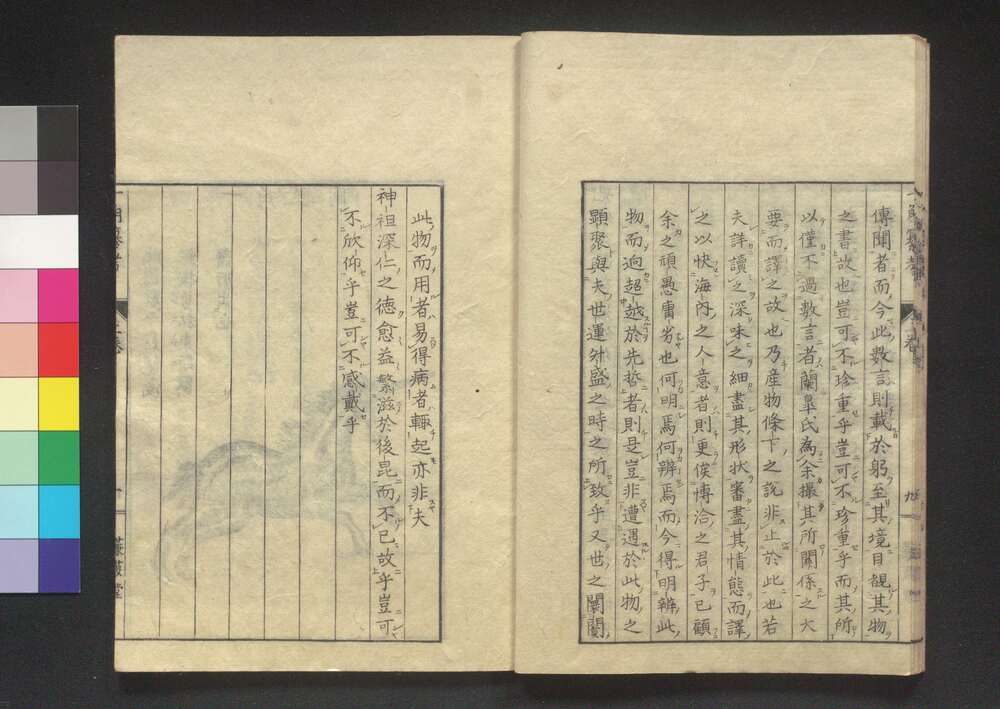 傳聞者而今此數言則載於躬至其境目覩其物
之書故也豈可不珍重乎豈可不珍重乎而其所
以僅不過數言者蘭皐氏為余撮其所關係之大
要而譯之故也乃產物條下之說非止於此也若
夫詳讀之深味之細盡其形狀審盡其情態而譯
之以快海內之人意者則更俟博洽之君子已顧
余之頑愚庸劣也何明焉何辨焉而今得明辨此
物而逈超越於先哲者則是豈非遭遇於此物之
顯聚與夫世運舛盛之時之所致乎又世之闡闢
此物而用者易得病者輙起亦非夫
神祖深仁之德愈益繁滋於後昆而不已故乎豈可
不欣仰乎豈可不感戴乎